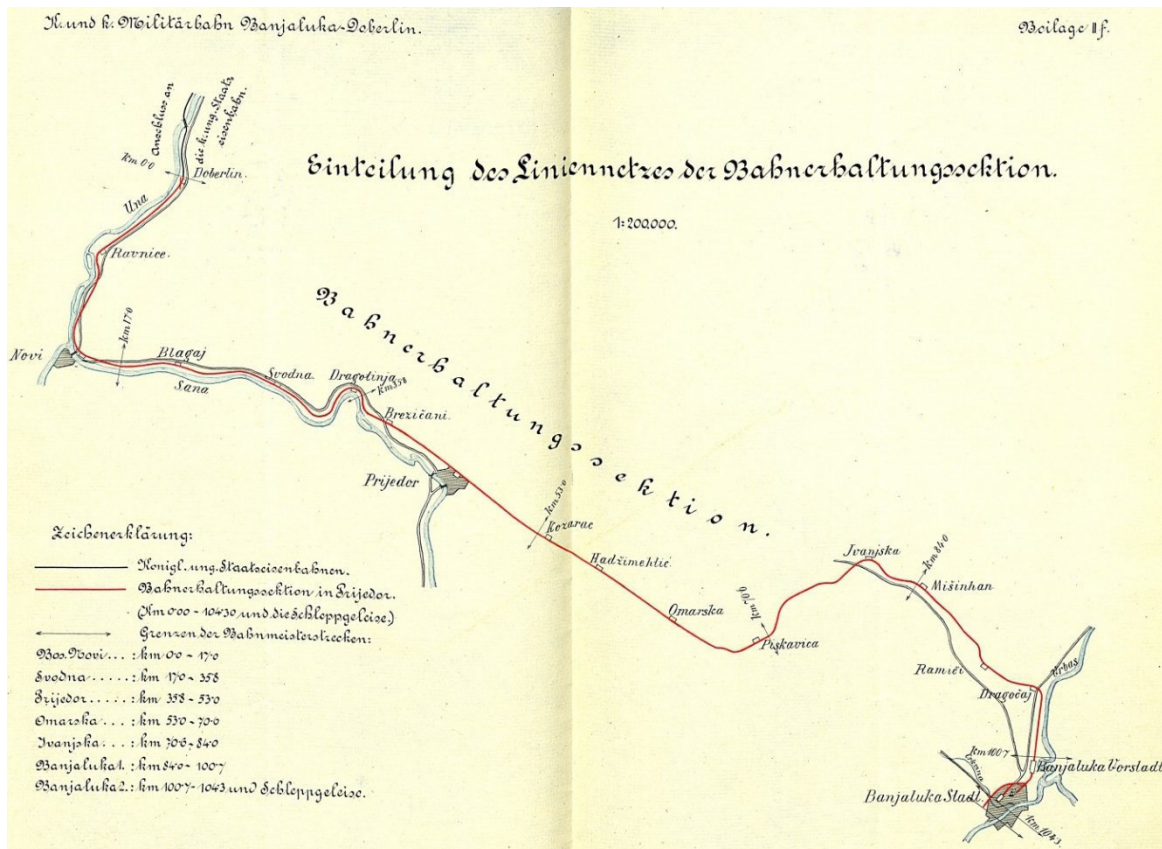 K. und k. Militärbahn Banjaluka-Doberlin.
Beilage II f.
Einteilung des Liniennetzes der Bahnerhaltungssektion.
1:200.000.
Anschluss an
die k. ung. Staats
eisenbahn.
km 0·0
Doberlin.
Una
Ravnice.
km 17·0
Novi
Blagaj
Sana
Svodna.
Dragotinja
km 35·8
Brezičani.
Prijedor
Bahnerhaltungssektion.
km 53·0
Kozarac
Hadžimehlić.
Omarska
km 70·6
Piskavica
Jvanjska
km 84·0
Mišinhan
Ramići
Dragočaj
Vrbas
km 100·7
Banjaluka Vorstadt
Banjaluka Stadt.
km 104·3.
Zeichenerklärung:
Königl. ung. Staatseisenbahnen.
Bahnerhaltungssektion in Prijedor.
(Km 0·00 - 104·30 und die Schleppgeleise.)
Grenzen der Bahnmeisterstrecken:
Bos. Novi . . . : km 0·0 - 17·0
Svodna . . . . . : km 17·0 - 35·8
Prijedor . . . . . : km 35·8 - 53·0
Omarska . . . : km 53·0 - 70·0
Jvanjska . . . : km 70·6 - 84·0
Banjaluka 1. : km 84·0 - 100·7
Banjaluka 2. : km 100·7 - 104·3 und Schleppgeleise.